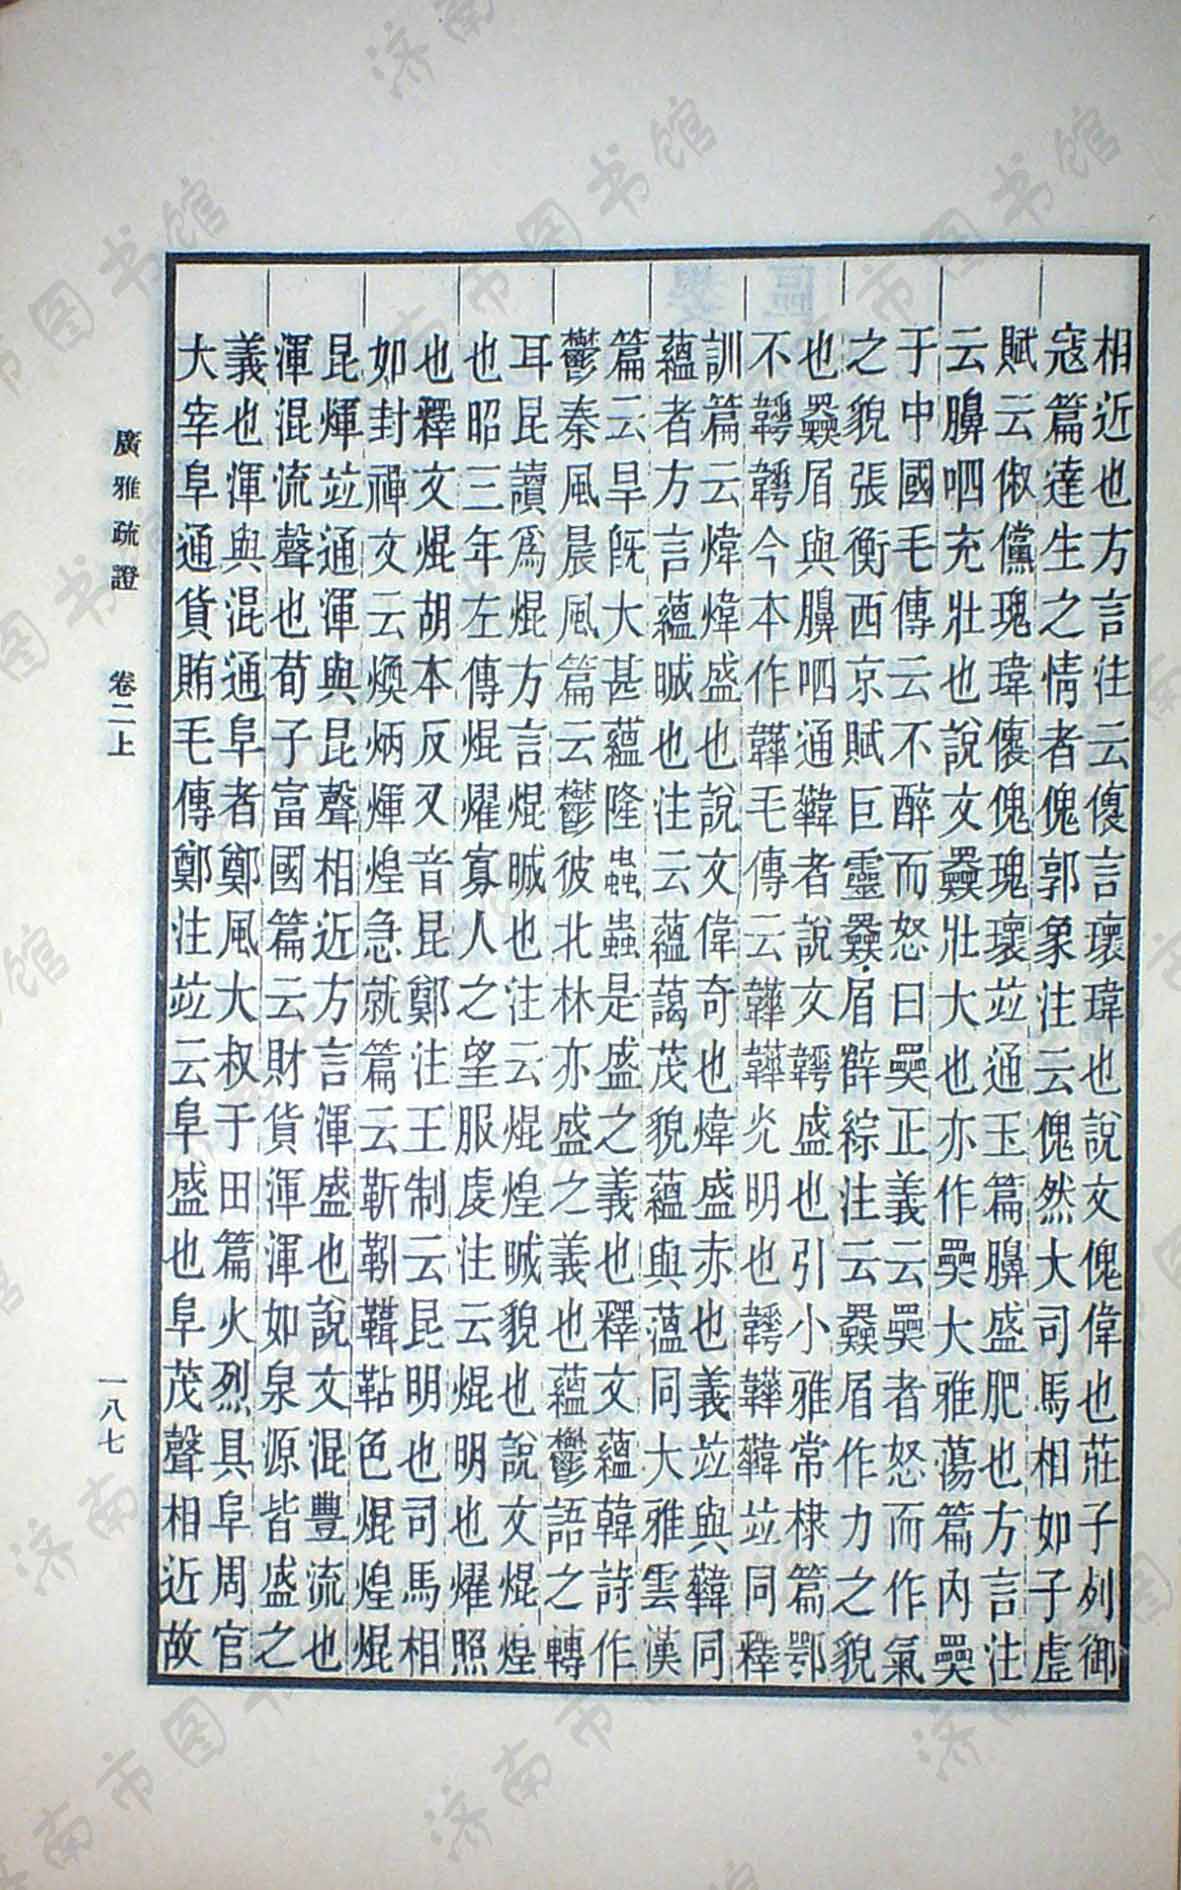 相近也方言注云言瓌瑋也說文傀偉也莊子列御
寇篇達生之情者傀郭象注云傀然大司馬相如子虛
賦云俶儻瑰瑋傀瑰瓌竝通玉篇盛肥也方言注
云呬充壯也說文奰壯大也亦作奰大雅蕩篇內奰
于中國毛傳云不醉而怒曰奰正義云奰者怒而作氣
之貌張衡西京賦巨靈奰眉薛綜注云奰眉作力之貌
也奰眉與呬通韡者說文韡盛也引小雅常棣篇鄂
不韡韡今本作韡毛傳云韡韡光明也韡韡韡竝同釋
訓篇云煒煒盛也說文偉奇也煒盛赤也義竝與韡同
蘊者方言蘊晠也注云蘊藹茂貌蘊與薀同大雅雲漢
篇云旱旣大甚蘊隆蟲蟲是盛之義也釋文蘊韓詩作
鬱秦風晨風篇云鬱彼北林亦盛之義也蘊鬱語之轉
耳昆讀爲焜方言焜晠也注云焜煌晠貌也說文焜煌
也昭三年左傳焜燿寡人之望服虔注云焜明也燿照
也釋文焜胡本反又音昆鄭注王制云昆明也司馬相
如封禪文云煥炳煇煌急就篇云靳靷鞊色焜煌焜
昆煇竝通渾與昆聲相近方言渾盛也說文混豐流也
渾混流聲也荀子富國篇云財貨渾渾如泉源皆盛之
義也渾與混通阜者鄭風大叔于田篇火烈具阜周官
大宰阜通貨賄毛傳鄭注竝云阜盛也阜茂聲相近故
廣雅疏證 卷二上
一八七
济南市图书馆